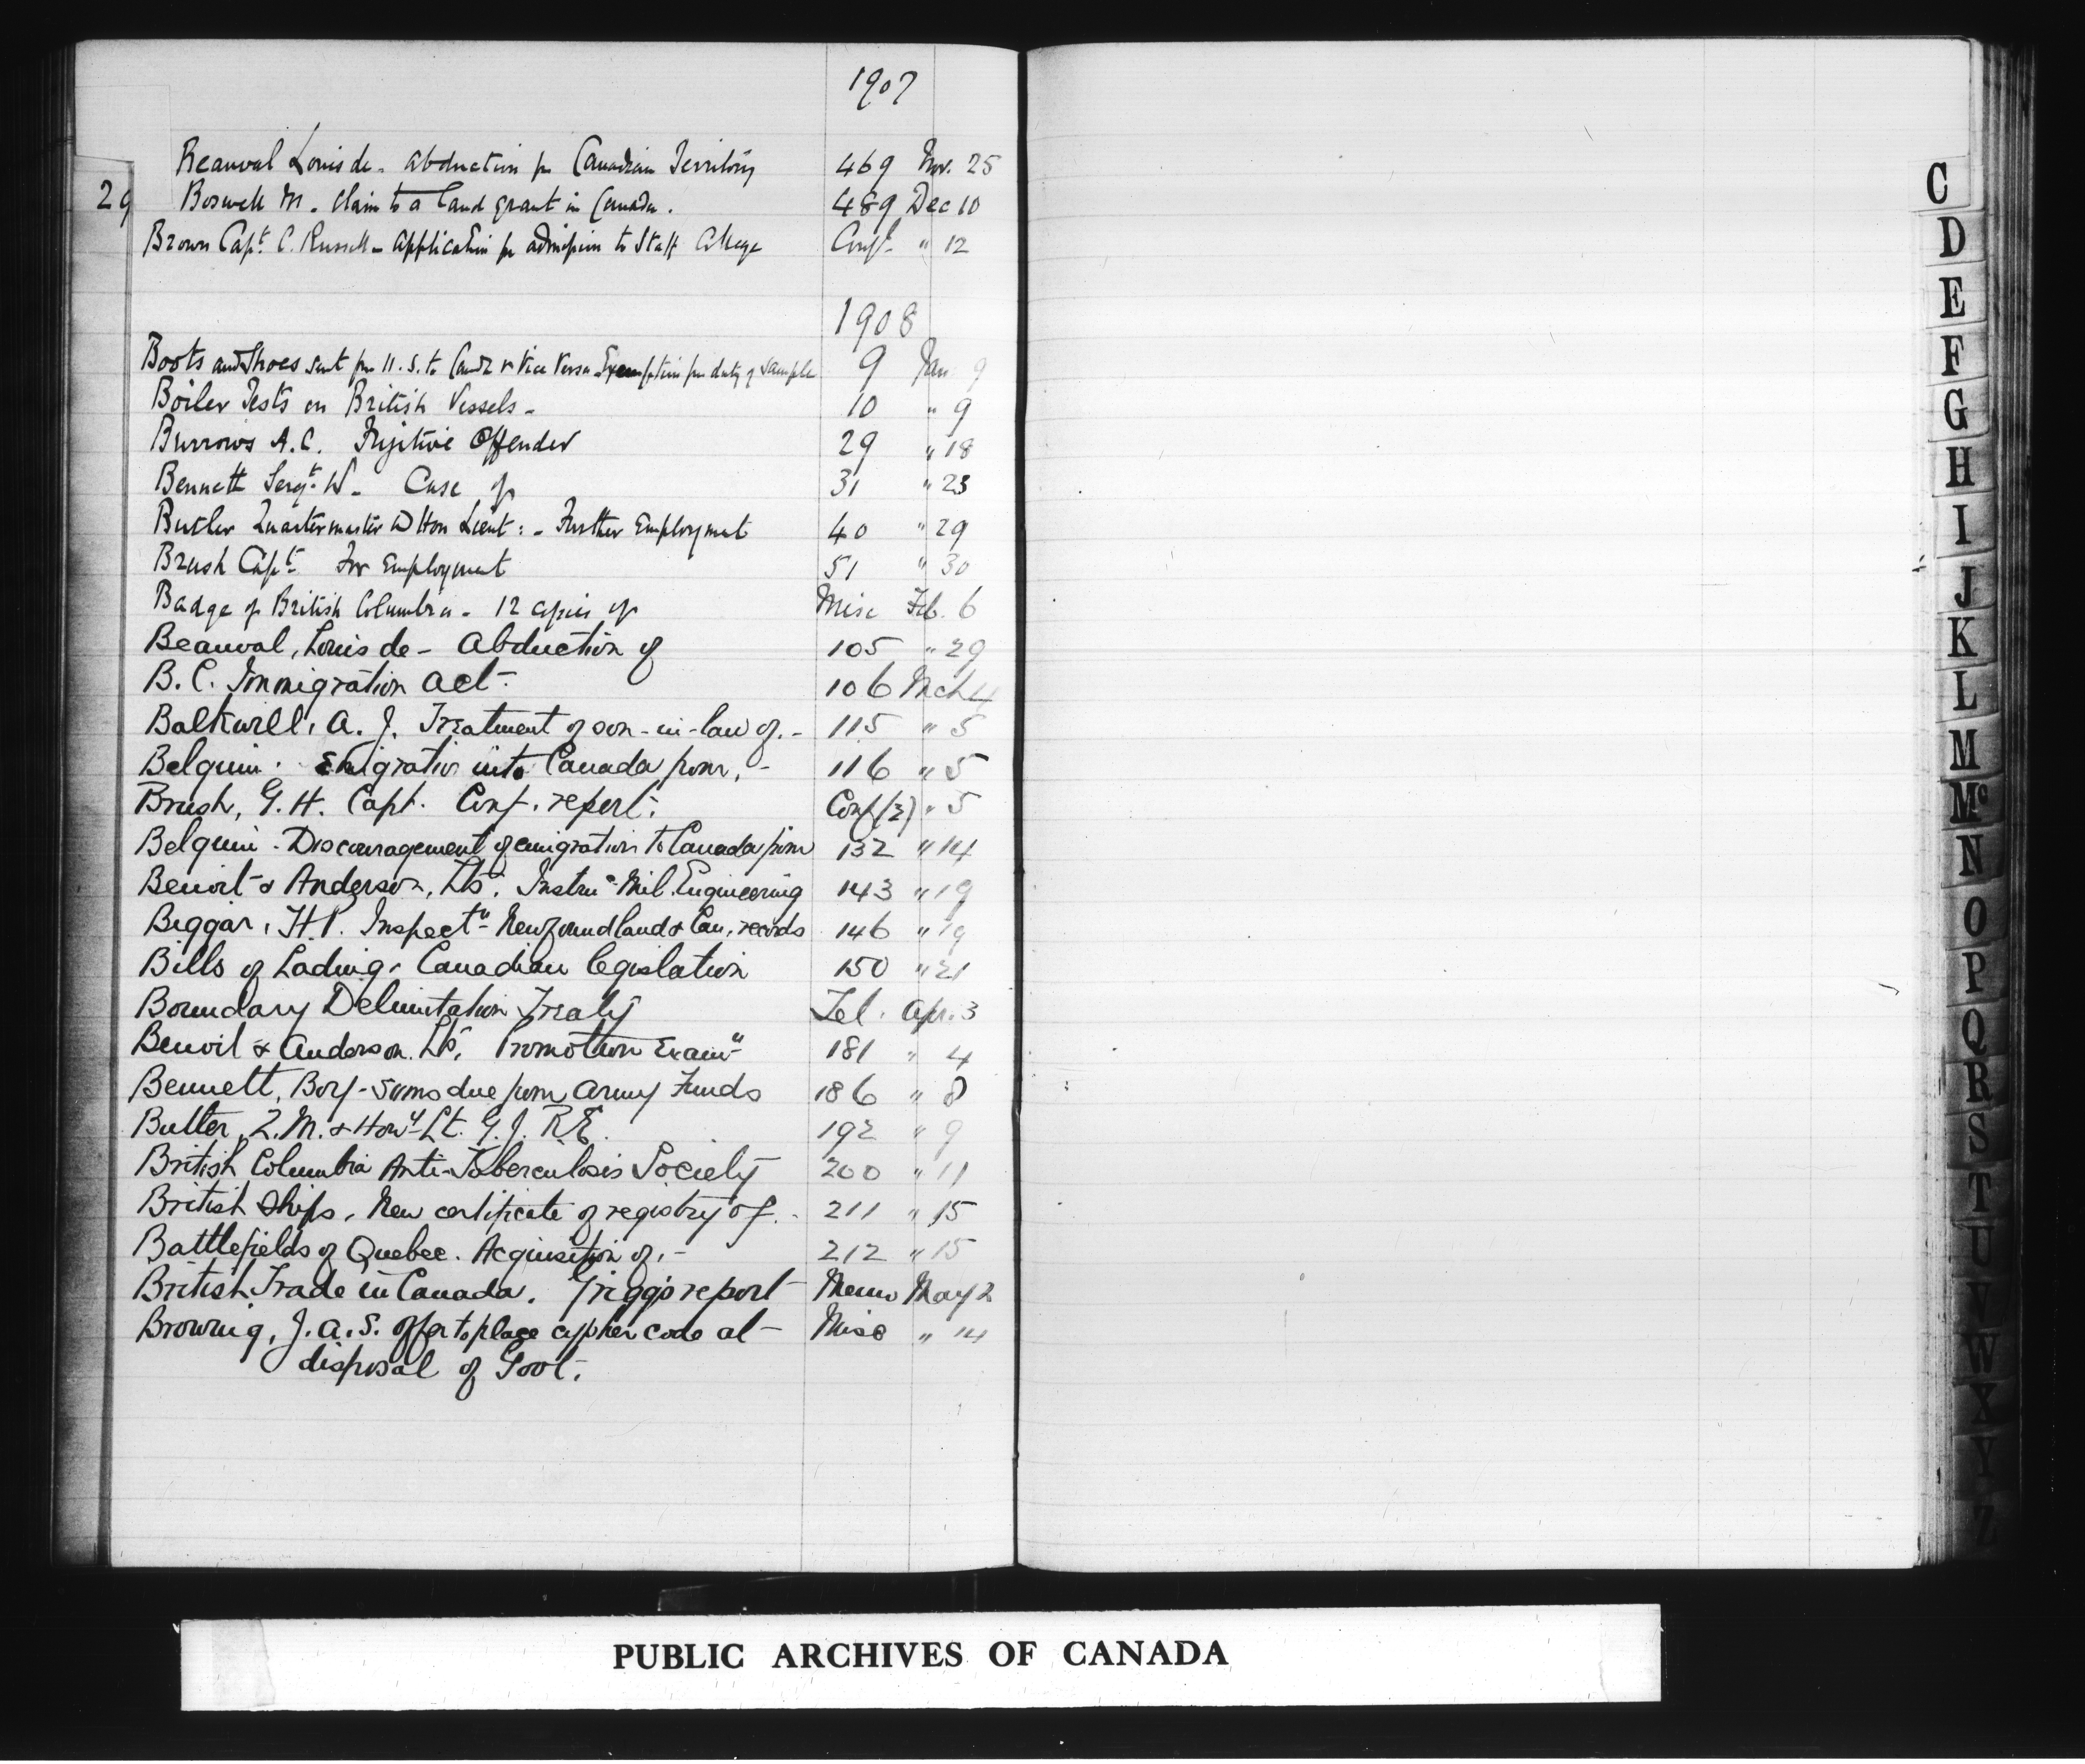 1907
Beauval Louis de - abduction fm Canadian Territory 469 Nov. 25
29 Boswell M. Claim to a land grant in Canada. 489 Dec 10
Brown Capt. C. Russell - Application for admission to Staff College Conf. " 12
1908
Boots and Shoes sent from U.S. to Canda & Vice Versa - Exemption from duty of Sample 9 Jan 9
Boiler Tests on British Vessels - 10 " 9
Burrows A.C. Fugitive Offender 29 " 18
Bennett Sergt. W - Case of 31 " 23
Butler Quartermaster & Hon Lieut: - Further Employment 40 " 29
Brush Capt. For Employment 51 " 30
Badge of British Columbia - 12 copies of Misc Feb. 6
Beauval, Louis de - Abduction of 105 " 29
B.C. Immigration Act - 106 Mch 4
Balkwill, A. J. Treatment of son-in-law of. - 115 " 5
Belgium. Emigration into Canada from, - 116 " 5
Brush, G. H. Capt. Conf. report. Conf (2) " 5
Belgium - Discouragement of emigration to Canada from 132 " 14
Benoit & Anderson, Lts. Instrn. Mil. Engineering 143 " 19
Biggar, H.P. Inspectn - Newfoundland & Can. records 146 " 19
Bills of Lading - Canadian legislation 150 " 21
Boundary Delimitation Treaty Tel. Apr. 3
Benoit & Anderson. Lts. Promotion Examn 181 " 4
Bennett, Boy - sums due from Army Funds 186 " 8
Butler, Q.M. & Hony Lt. G.J. R.E. 192 " 9
British Columbia Anti-Tuberculosis Society 200 " 11
British Ships. New certificate of registry of. - 211 " 15
Battlefields of Quebec. Acquisition of, - 212 " 15
British Trade in Canada. Grigg's report - Memo May 2
Browning, J.A.S. offer to place cypher code at - Misc " 14
disposal of Govt.
C
D
E
F
G
H
I
J
K
L
M
Mc
N
O
P
Q
R
S
T
U
V
W
X
Y
Z
PUBLIC ARCHIVES OF CANADA